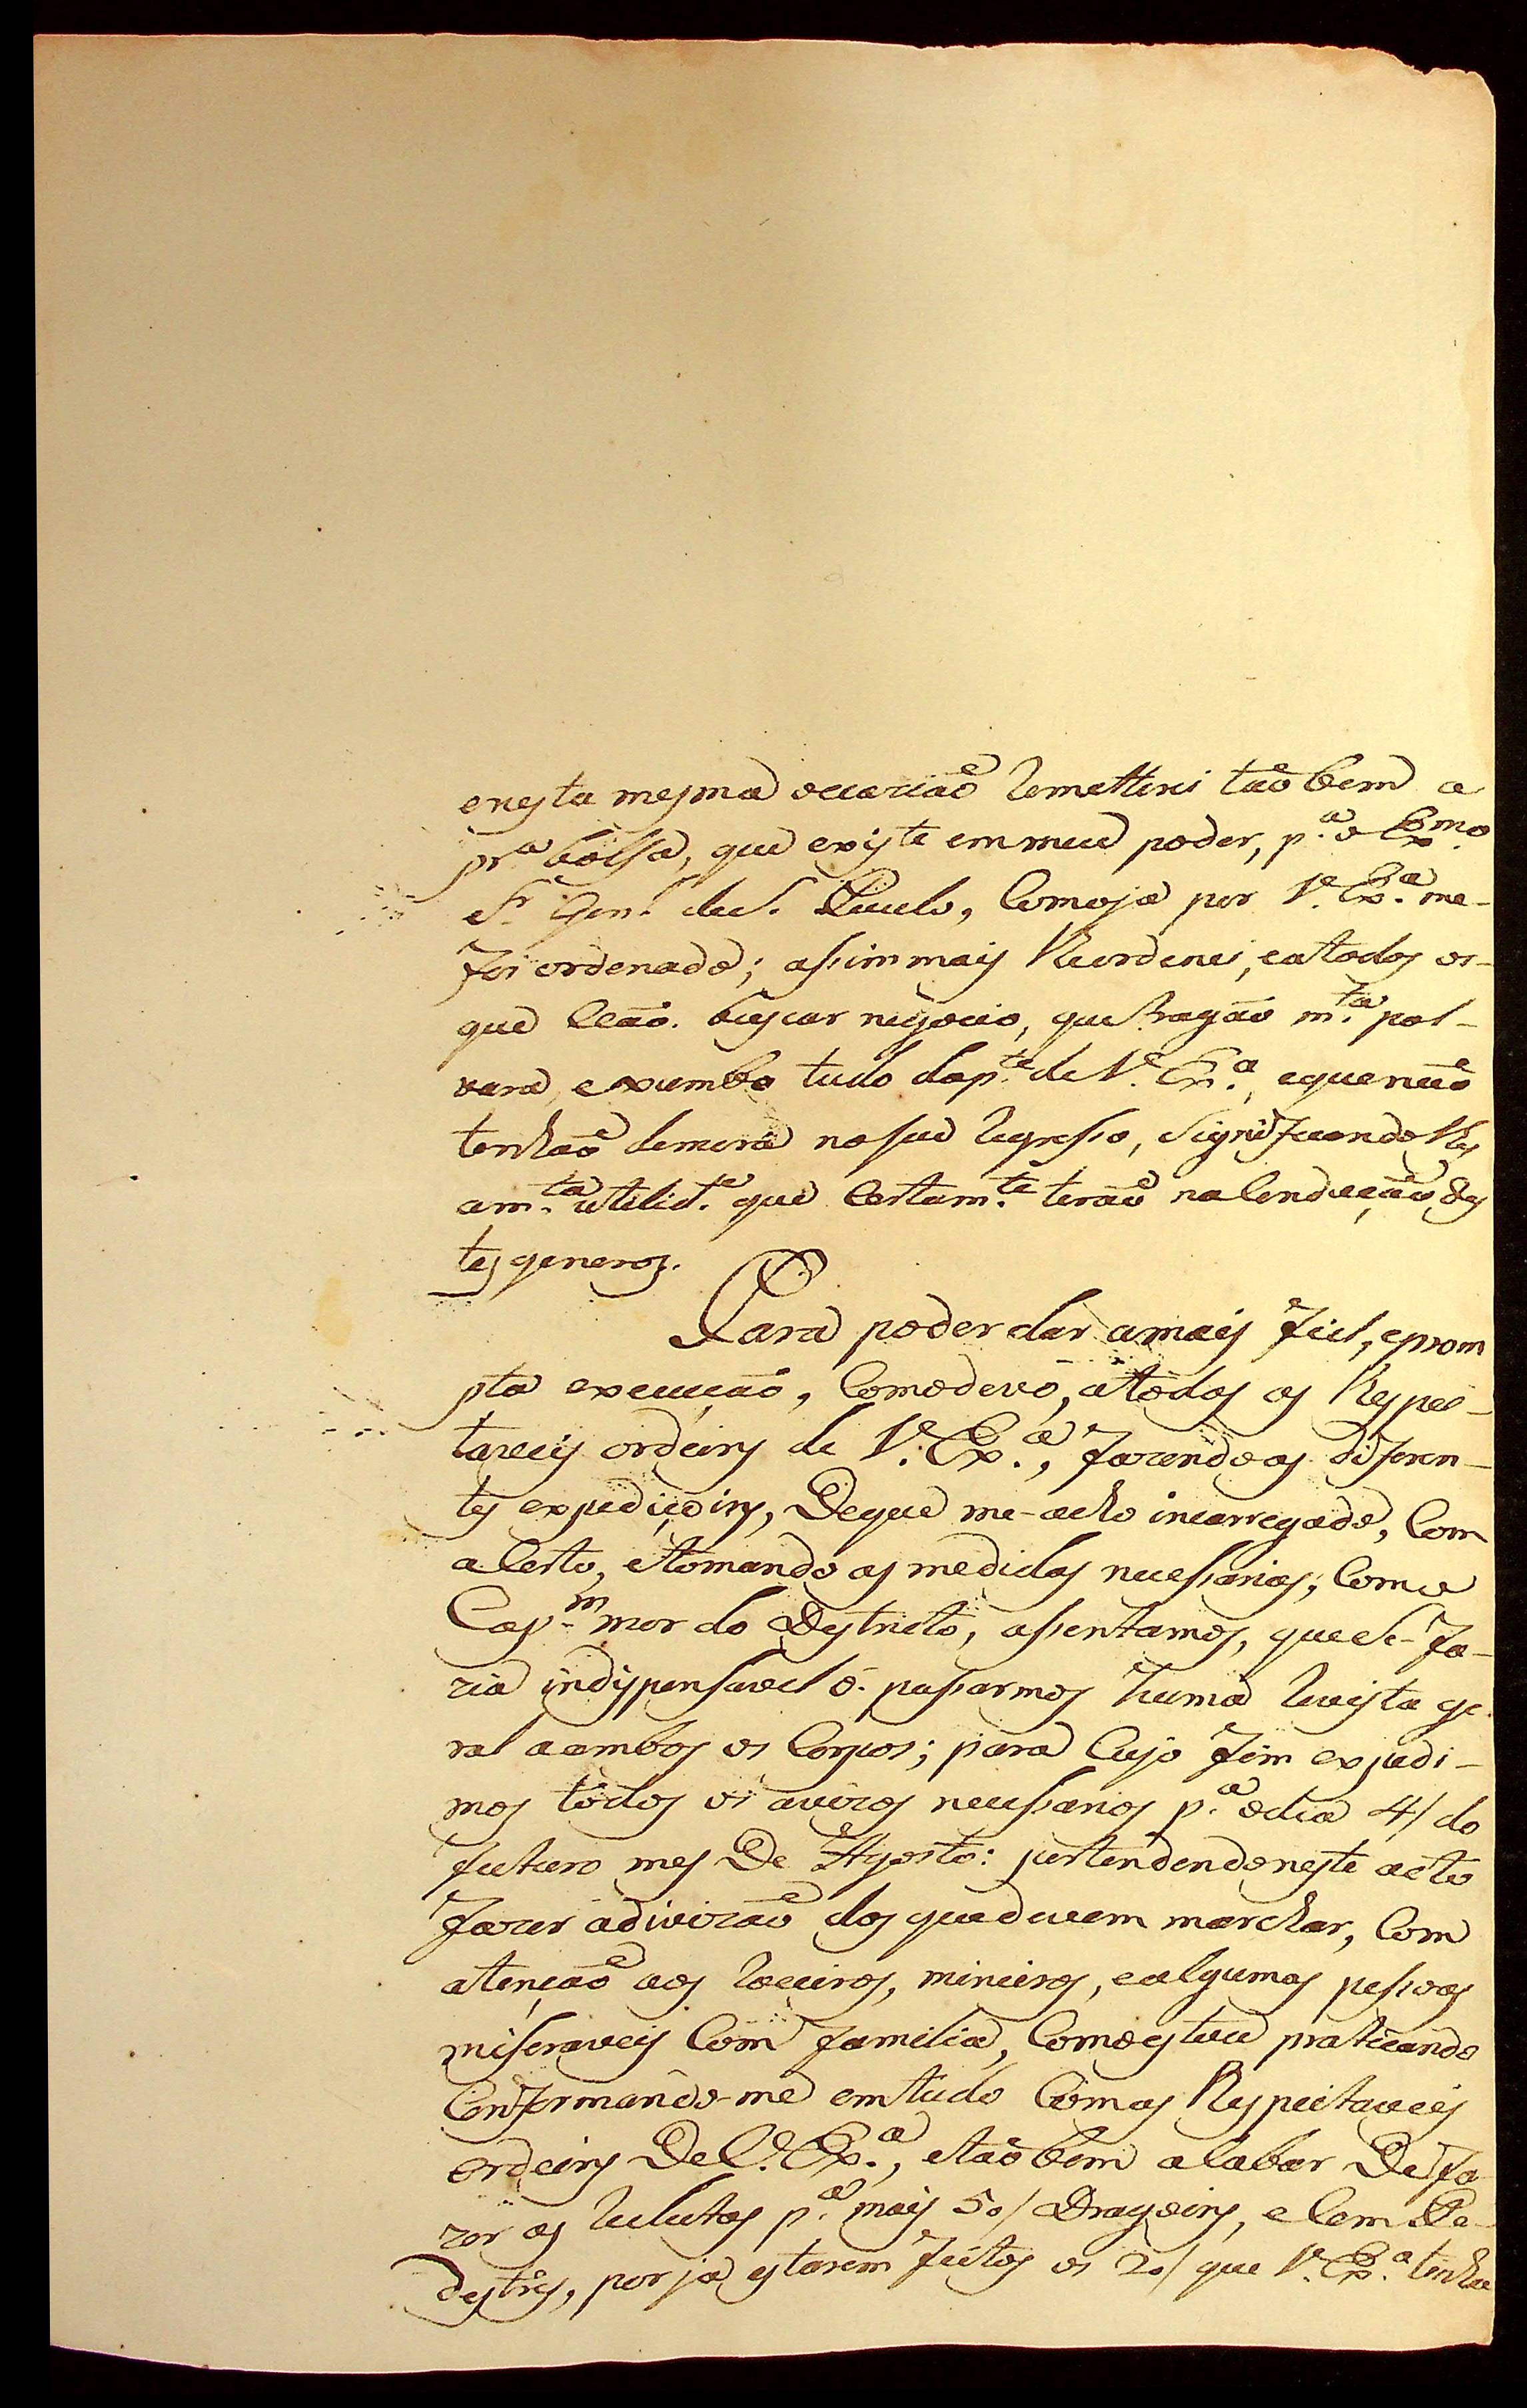 enesta mesma occazião remetterei tãobem a
pr.ª bolsa, que existe emmeu poder, p.ª o Ex.mo
Sr. Gen.l de S. Paulo, Comojá por V. Ex.ª me-
foi ordenado; assimmais Reordenei, eatodos os-
que vão buscar negocio, quetragão m.ta pol-
vara, exumbo tudo dap.te de V. Ex.ª, equenão
tenhão demora noseu regresso, SignificandoLhes
am.ta utilid.e que Certam.te terão naConducção des
tes generos.
Para poder dar amais fiel, eprom
pta execução, Comodevo, atodas as Respei-
taveis ordeins de V. Ex.ª, fazendoas diferen-
tes expediçoins, Deque me-acho incarregado, Com
aCerto, etomando as medidas necessarias; Como
Cap.m mor do Destricto, assentamos, que Se-fa-
zia indispensavel o passarmos huma revista ge-
ral aambos os Corpos; para Cujo fim expedi-
mos todos os avizos necessarios p.ª odia 4/ do
futuro mes De Agosto: pertendendoneste acto
fazer adivizão dos quedevem marchar, Com
atenção aos roceiros, mineiros, ealgumas pessoas
miseraveis Com familia, Comoestou praticando
Conformando-me emtudo Comas Respeitaveis
ordeins De V. Ex.ª, etãobem acabar De fa-
zer as reclutas p.ª mais 50/ Dragoins, eCem Pe-
destres, por já estarem feitos os 20/ que V. Ex.ª tinha